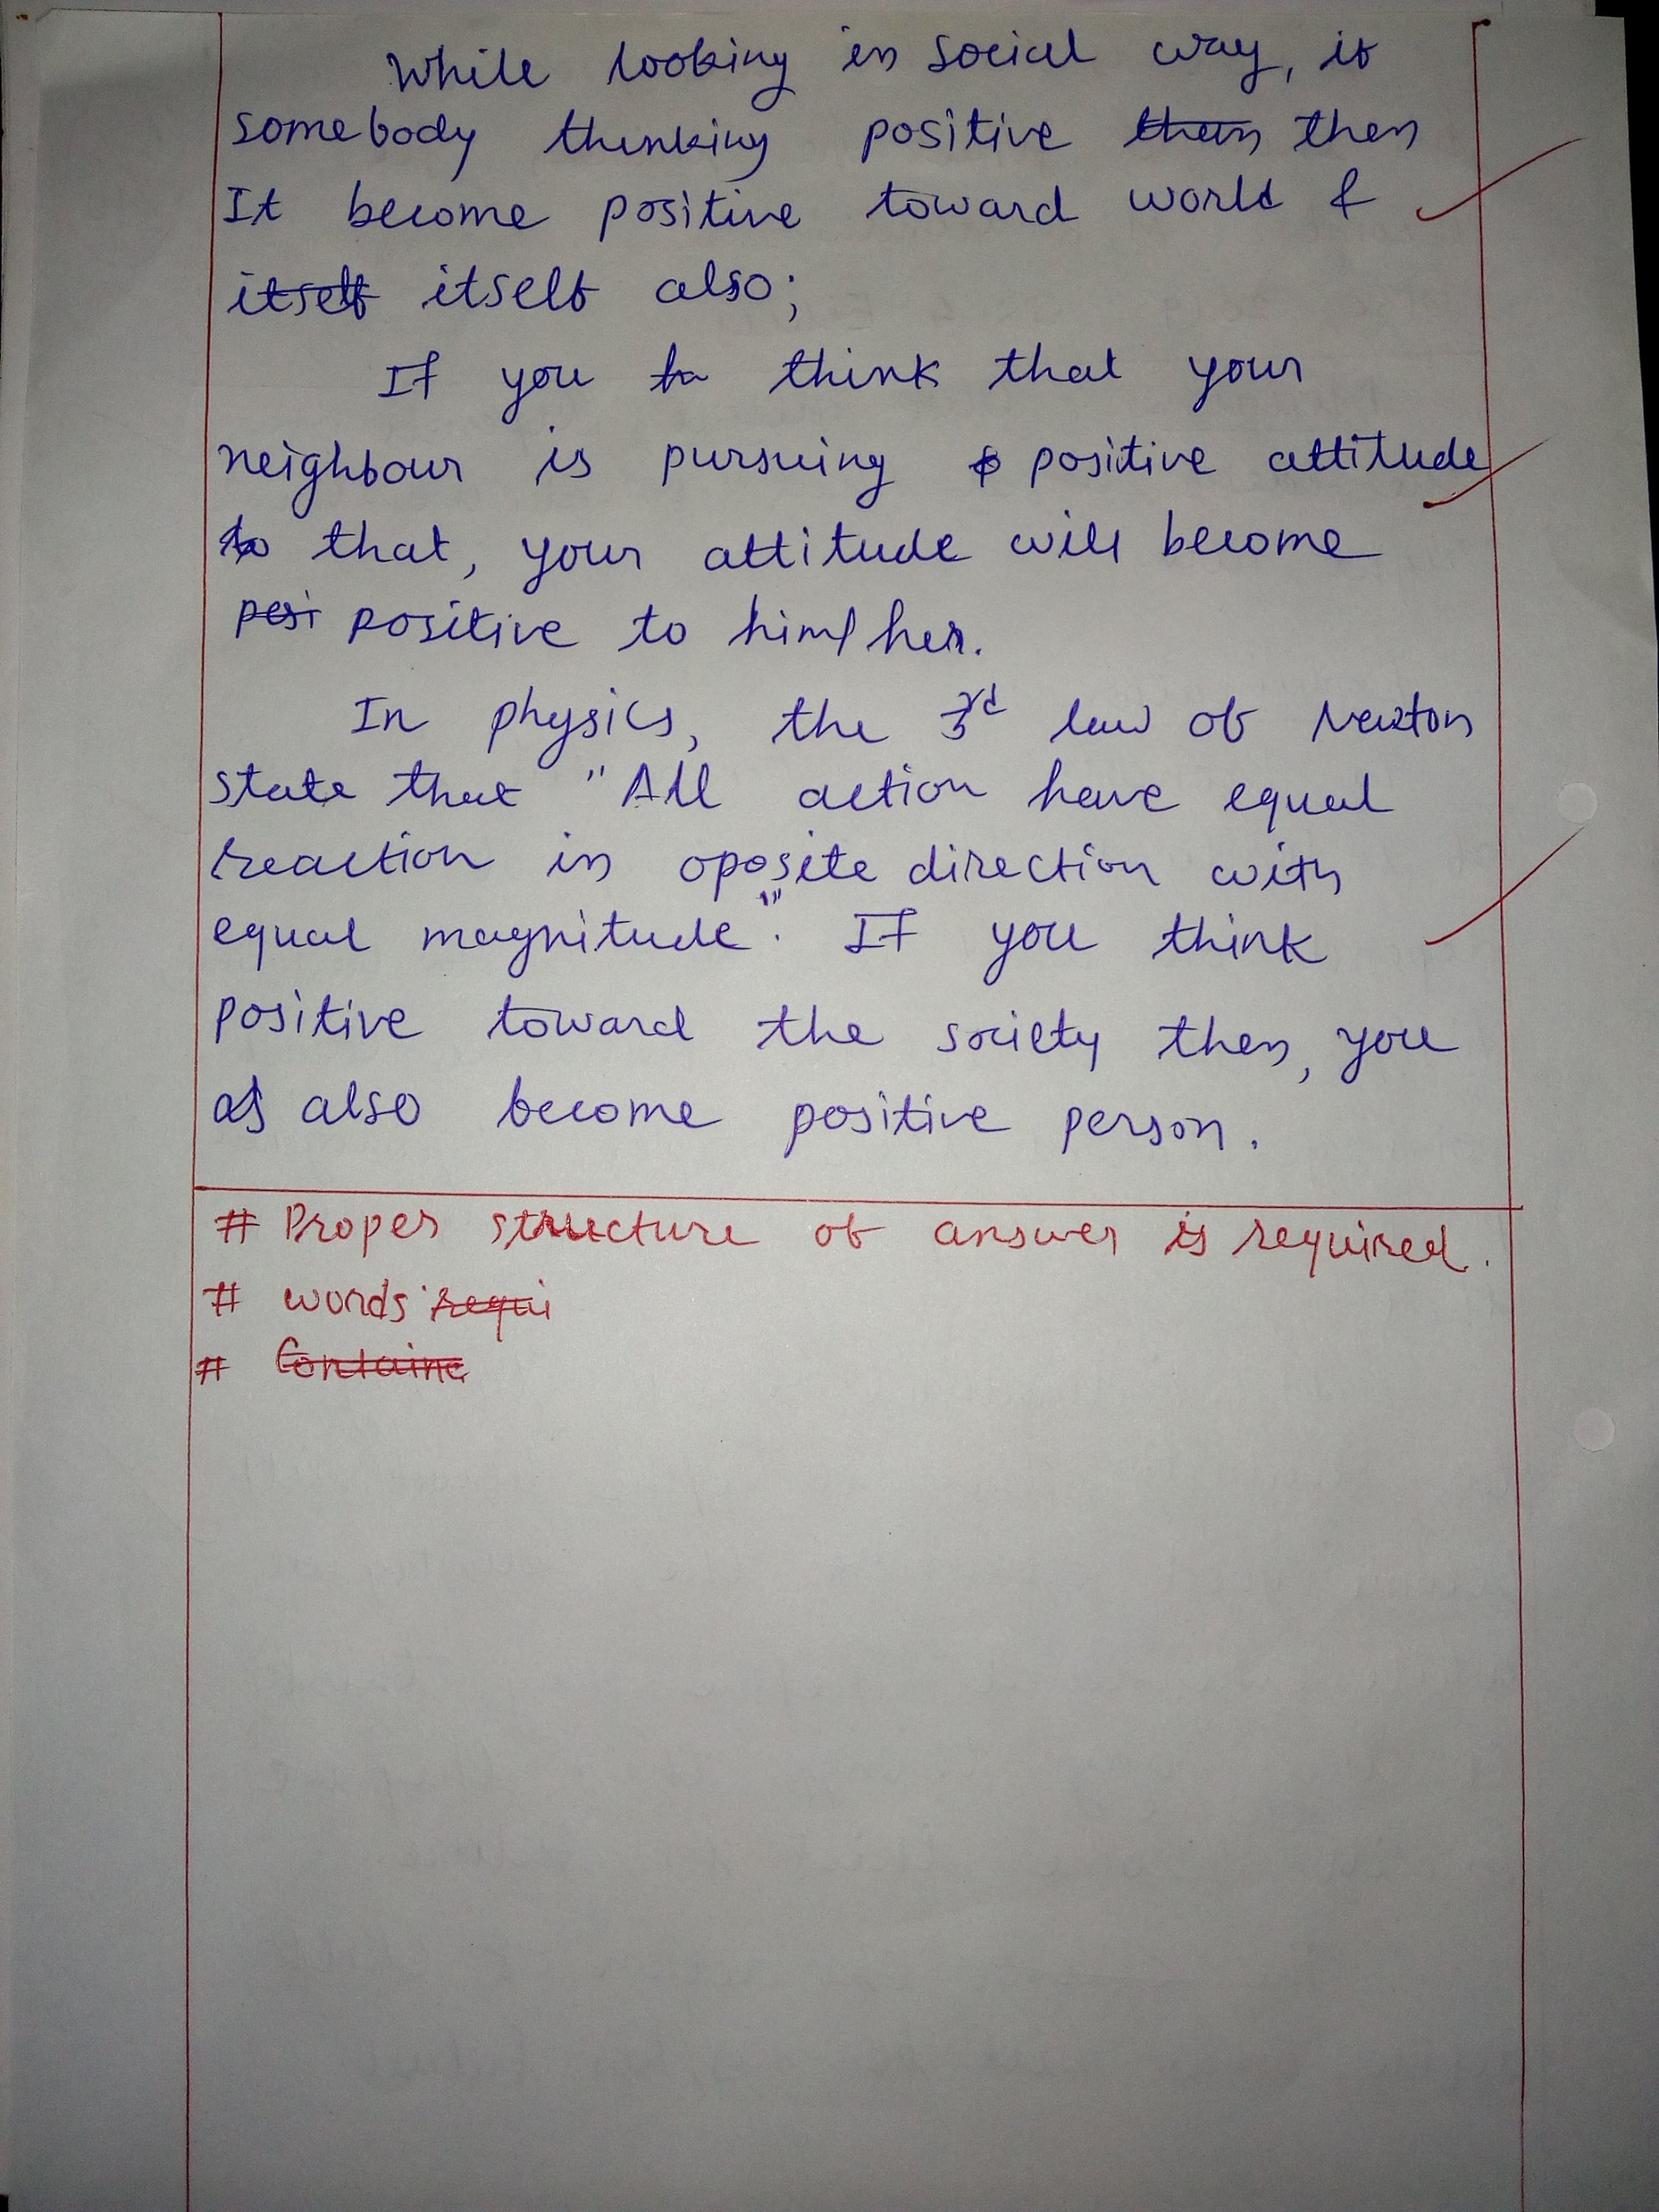 While looking in social way, if
somebody thinking positive then then
It become positive toward world &
itself itself also;
If you ta think that your
neighbour is pursuing positive attitude
to that, your attitude will become
posi positive to him/her.
In physics, the 3rd law of Newton
state that "All action have equal
reaction in oposite direction with
equal magnitude". If you think
positive toward the society then, you
as also become positive person.
# Proper structure of answer is required.
# words requi
# Containe